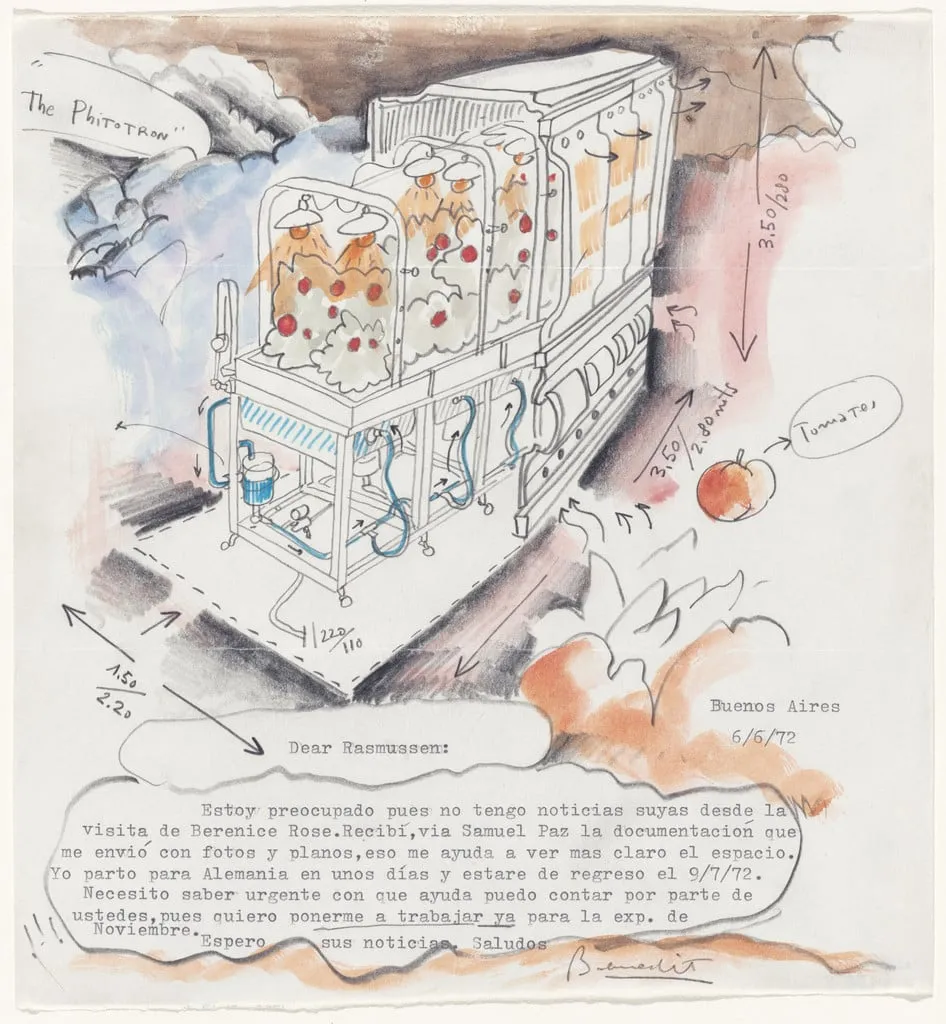 "The Phitotron"
3.50/280
3.50/2.80 mts
Tomates
220/110
1.50/2.20
Buenos Aires
6/6/72
Dear Rasmussen:
Estoy preocupado pues no tengo noticias suyas desde la
visita de Berenice Rose.Recibí,via Samuel Paz la documentación que
me envió con fotos y planos,eso me ayuda a ver mas claro el espacio.
Yo parto para Alemania en unos días y estare de regreso el 9/7/72.
Necesito saber urgente con que ayuda puedo contar por parte de
ustedes,pues quiero ponerme a trabajar ya para la exp. de
Noviembre.
Espero sus noticias. Saludos
Benedit